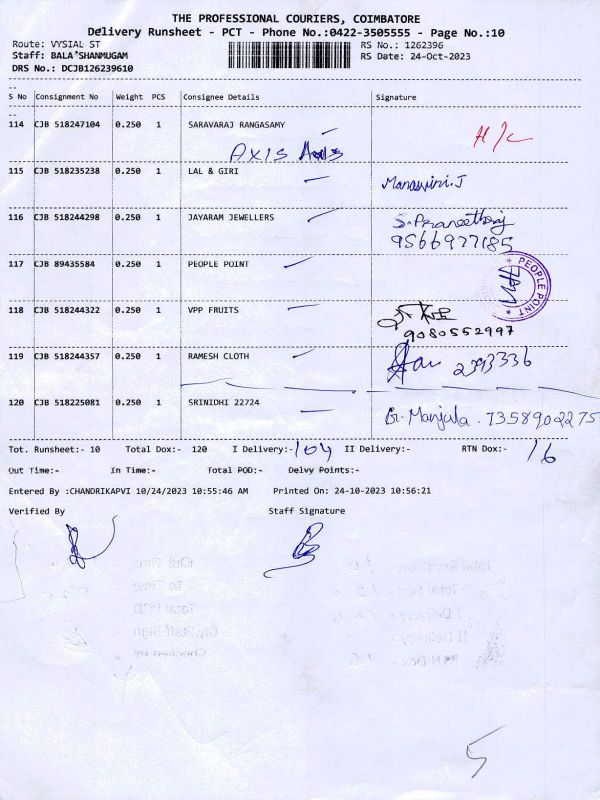 THE PROFESSIONAL COURIERS, COIMBATORE
Delivery Runsheet - PCT - Phone No.:0422-3505555 - Page No.:10
Route: VYSIAL ST RS No.: 1262396
Staff: BALA^SHANMUGAM RS Date: 24-Oct-2023
DRS No.: DCJB126239610
S No Consignment No Weight PCS Consignee Details Signature
114 CJB 518247104 0.250 1 SARAVARAJ RANGASAMY H/c
AXIS
115 CJB 518235238 0.250 1 LAL & GIRI Manaswini.J
116 CJB 518244298 0.250 1 JAYARAM JEWELLERS
9566977185
117 CJB 89435584 0.250 1 PEOPLE POINT PEOPLE POINT
118 CJB 518244322 0.250 1 VPP FRUITS
9080552997
119 CJB 518244357 0.250 1 RAMESH CLOTH 2393336
120 CJB 518225081 0.250 1 SRINIDHI 22724 G. Manjula. 7358902275
Tot. Runsheet:- 10 Total Dox:- 120 I Delivery:- 104 II Delivery:- RTN Dox:- 16
Out Time:- In Time:- Total POD:- Delvy Points:-
Entered By :CHANDRIKAPVI 10/24/2023 10:55:46 AM Printed On: 24-10-2023 10:56:21
Verified By Staff Signature
5